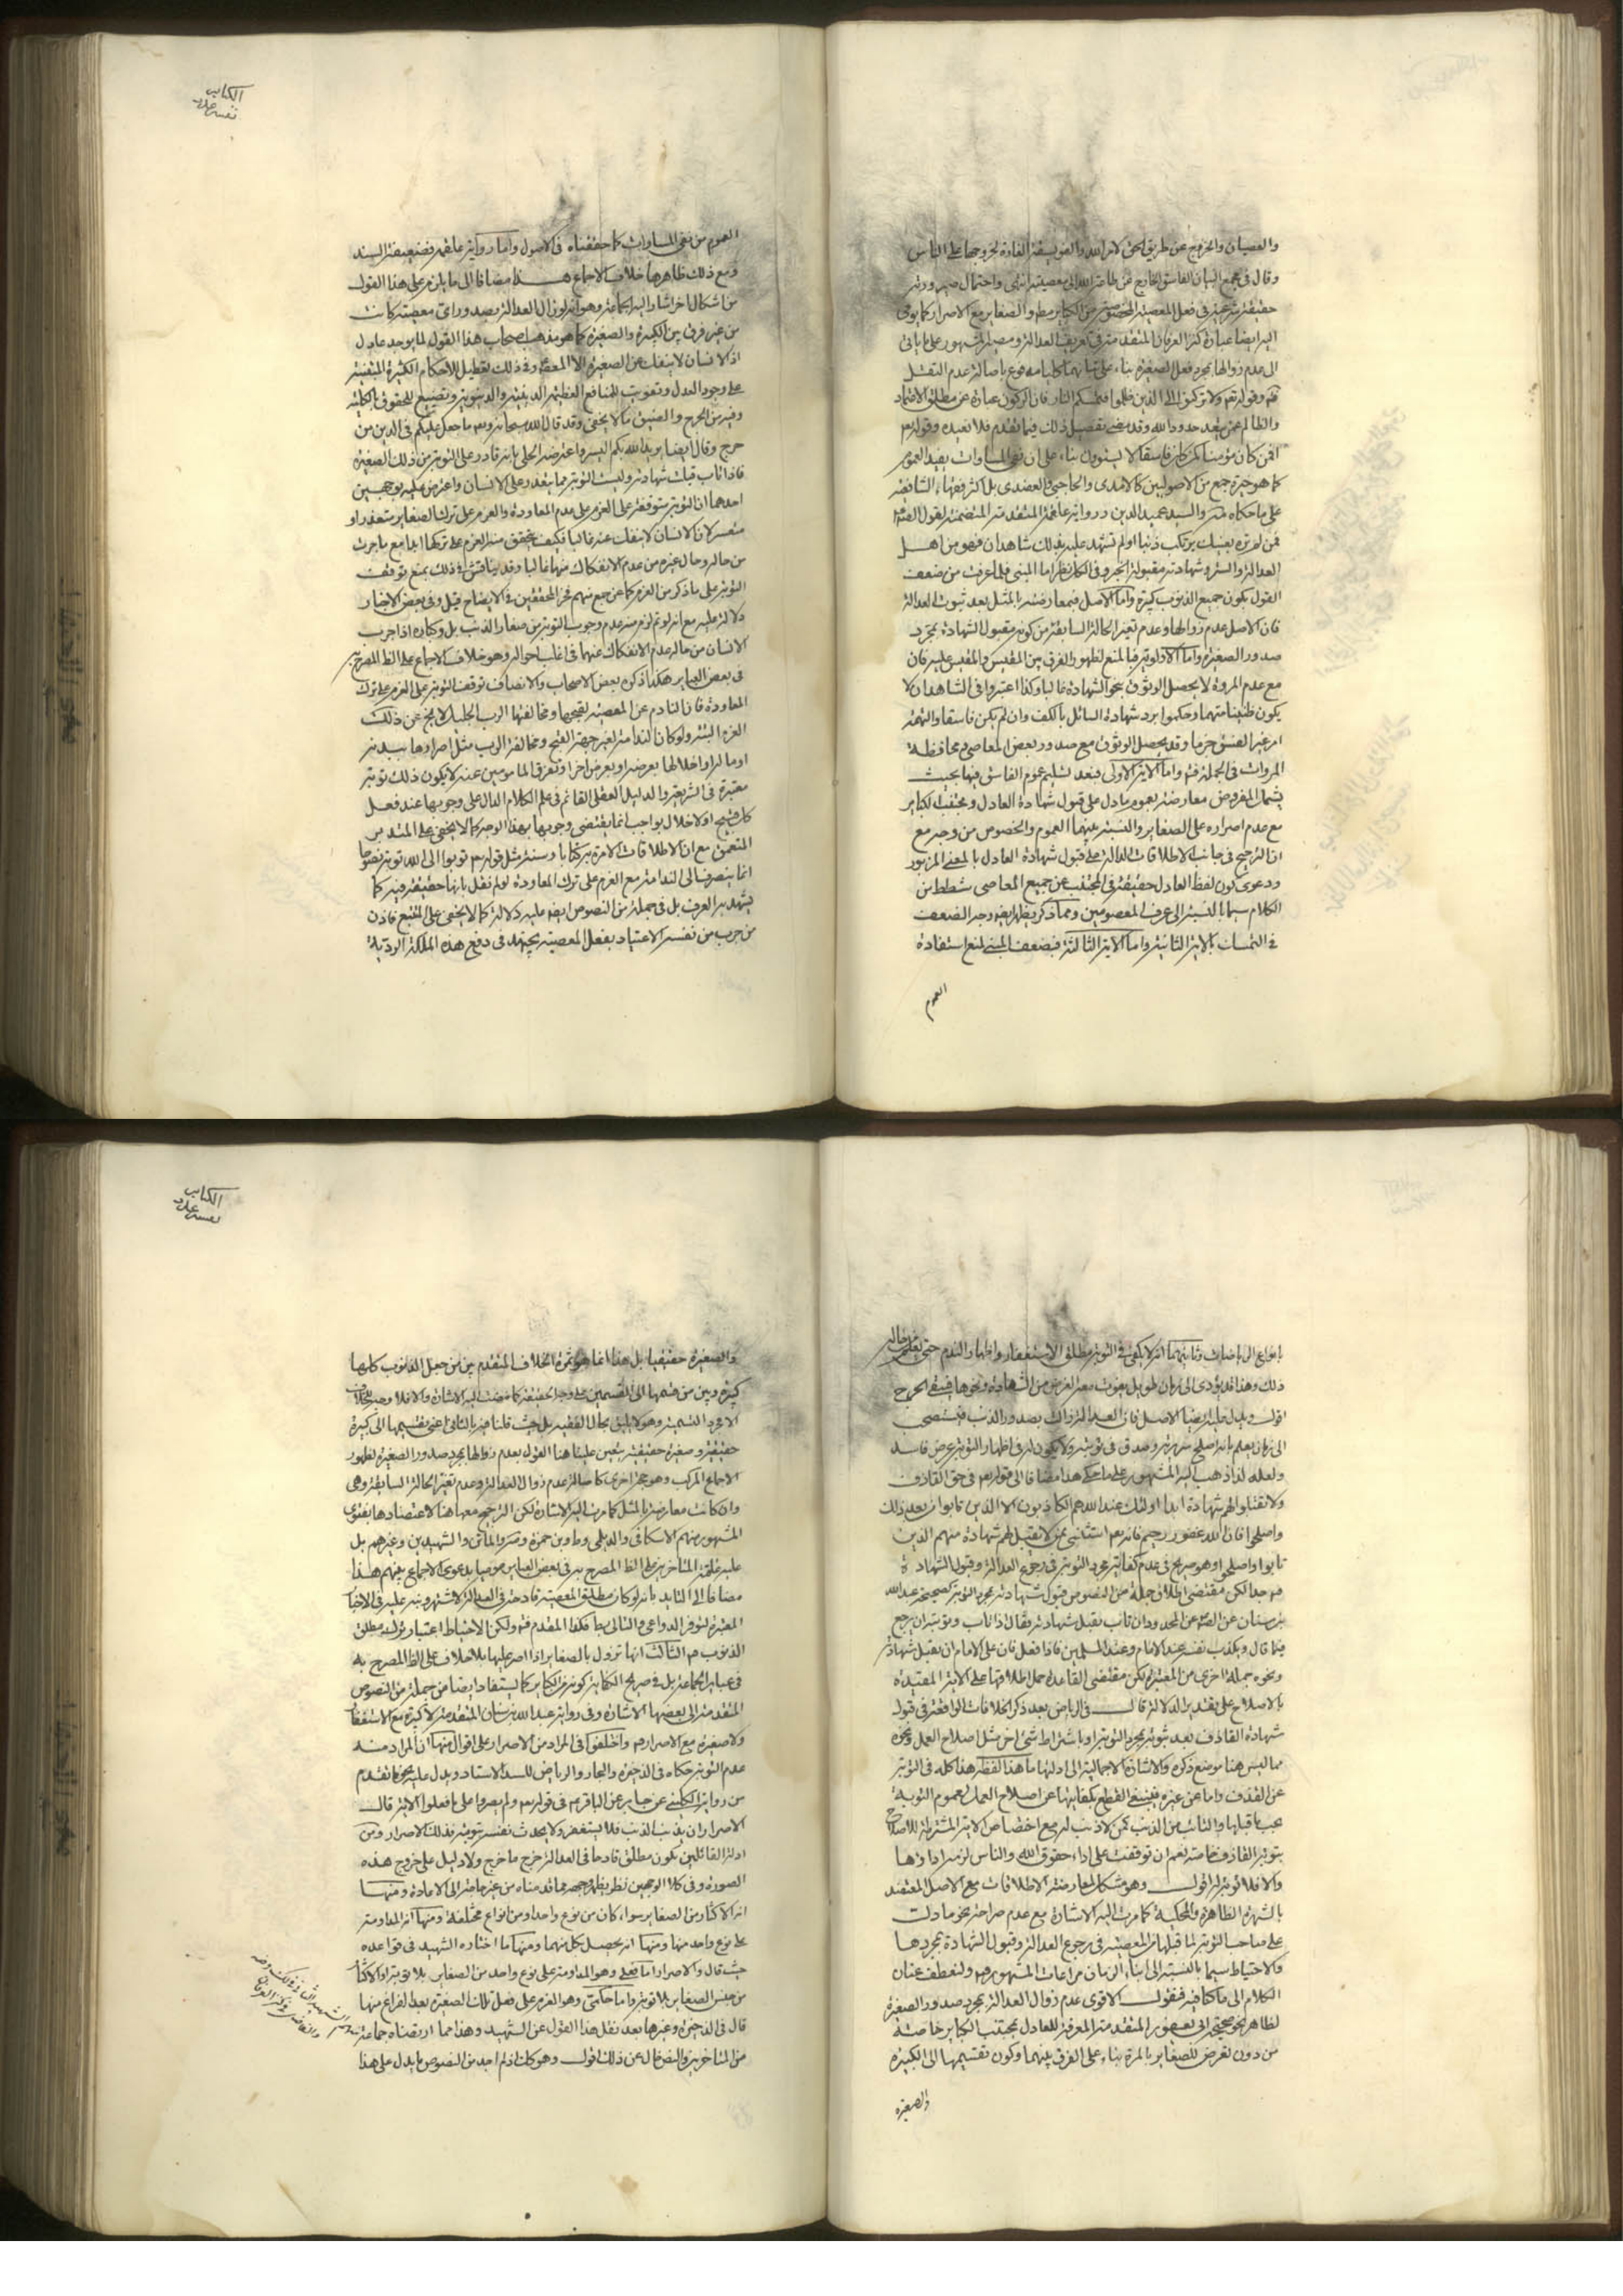 والعصيان والخروج عن طريق الحق لامر الله والفويسقة الفارة لخروجها على الناس
وقال في مجمع البيان الفاسق الخارج عن طاعة الله الى معصيته انتهى واحتمال صيرورته
حقيقة شرعية في فعل المعصية المخصوصة من الكباير مطو والصغاير مع الاصرار كما يومى
اليه ايضا عبارة كنز العرفان المتقدمة في تعريف العدالة ومصير المشهور على ما ياتى
الى عدم زوالها بمجرد فعل الصغيرة بناء على مدفوع باصالة عدم النقل
فت وقوله تع ولا تركنوا الى الذين ظلموا فتمسكم النار فان الركون عبارة عن مطلق الاعتماد
والظالم عمن يتعد حدود الله وقد مضى تفصيل ذلك فيما تقدم فلا نعيده وقوله تع
افمن كان مؤمنا كمن كان فاسقا لا يستوون بناء على ان نفى المساوات يفيد العموم
كما هو خيرة جمع من الاصوليين كالامدى والحاجبى والعضدى بل اكثر فقهاء الشافعية
على ما حكاه والسيد عميد الدين ورواية علقمة المتقدمة المتضمنة لقول الص
فمن لم تره بعينك يرتكب ذنبا او لم تشهد عليه بذلك شاهدان فهو من اهل
العدالة والستر وشهادته مقبولة الخبر وفي الكل نظر اما المبنى فلما عرفت من ضعف
القول بكون جميع الذنوب كبيرة واما الاصل فبمعارضته بالمثل بعد ثبوت العدالة
فان الاصل عدم زوالها وعدم تغير الحالة السابقة من كونه مقبول الشهادة بمجرد
صدور الصغيرة واما الاولوية فبالمنع لظهور الفرق بين المقيس والمقيس عليه فان
مع عدم المروة لا يحصل الوثوق بحو الشهادة غالبا وكذا اعتبروا في الشاهد ان لا
يكون ظنينا متهما وحكموا برد شهادة السائل بالكف وان لم يكن فاسقا والتهمة
امر غير الفسق جزما وقد يحصل الوثوق مع صدور بعض المعاصى ثم محافظة
المروات في الجملة فت واما الاية الاولى فبعد تسليم عموم الفاسق فيها بحيث
يشمل المفروض معارضته بعموم ما دل على قبول شهادة العادل ومجتنب الكباير
مع عدم اصراره على الصغاير والنسبة بينهما العموم والخصوص من وجه مع
ان الترجيح في جانب الاطلاقات الدالة على قبول شهادة العادل بالمعنى المزبور
ودعوى كون لفظ العادل حقيقة في المجتنب عن جميع المعاصى شطط من
الكلام سيما بالنسبة الى عرف المعصومين ومما ذكر يظهر ايضا وجه الضعف
في التمسك بالاية الثانية واما الاية الثالثة فبضعف المبنى لمنع استفادة
العموم
الكتاب
العموم من نفى المساوات كما حققناه في الاصول واما رواية علقمة فضعيفة السند
ومع ذلك ظاهرها خلاف الاجماع هذا مضافا الى ما يلزم على هذا القول
من اشكال اخر اشار اليه الجماعة وهو انه لو زال العدالة بصدور اى معصية كانت
من غير فرق بين الكبيرة والصغيرة كما هو مذهب اصحاب هذا القول لما يوجد عادل
اذ الانسان لا ينفك عن الصغيرة الا المعصوم وفي ذلك تعطيل للاحكام الكثيرة المبتنية
على وجود العدل وتفويت للمنافع العظيمة الدينية والدنيوية وتضييع للحقوق بالكلية
وفيه من الحرج والضيق ما لا يخفى وقد قال الله سبحانه وتع ما جعل عليكم في الدين من
حرج وقال ايضا يريد الله بكم اليسر واعترضه الحلى بانه قادر على التوبة من ذلك الصغيرة
فاذا تاب قبلت شهادته وليست التوبة مما يتعذر على الانسان واعترض عليه بوجهين
احدهما ان التوبة متوقفة على العزم على عدم المعاودة والعزم على ترك الصغاير متعذر او
متعسر لان الانسان لا ينفك عنه غالبا فكيف يتحقق منه العزم على تركها ابدا مع ما جرت
من حاله وحال غيره من عدم الانفكاك منها غالبا وقد يناقش في ذلك بمنع توقف
التوبة على ما ذكر من العزم كما عن جمع منهم فخر المحققين في الايضاح قيل وفي بعض الاخبار
دلالة عليه مع انه لو تم لزم منه عدم وجوب التوبة من صغار الذنب بل وكباره اذا جرب
الانسان من حاله عدم الانفكاك عنهما في اغلب احواله وهو خلاف الاجماع على الظ المصرح به
في بعض العباير هكذا ذكره بعض الاصحاب والانصاف توقف التوبة على العزم على ترك
المعاودة فان النادم عن المعصية لقبحها ومخالفتها الرب الجليل لا يخ عن ذلك
العزم البتة ولو كان الندامة لغير جهة القبح ومخالفة الرب مثل اضرارها ببدنه
او ماله او اخلالها بعرضه او بغرض اخر لا يكون ذلك توبة
معتبرة في الشريعة والدليل العقلى القائم في علم الكلام الدال على وجوبها عند فعل
كل قبيح او الاخلال بواجب انما يقتضى وجوبها بهذا الوجه كما لا يخفى على المتدبر
المتعمق مع ان الاطلاقات الامرة به كتابا وسنة مثل قوله تع توبوا الى الله توبة نصوحا
انما ينصرف الى الندامة مع العزم على ترك المعاودة لو لم نقل بانها حقيقة فيه كما
يشهد به العرف بل في جملة من النصوص ايضا عليه دلالة كما لا يخفى على المتتبع فاذن
من جرب من نفسه الاعتياد بفعل المعصية يجتهد في دفع هذه الملكة الردية
باقلاع الى وثانيهما انه لا يكفى في التوبة مطلق الاستغفار واظهار الندم حتى يعلم من حاله
ذلك وهذا قد يؤدى الى زمان طويل يفوت معه الغرض من الشهادة ونحوها فيبقى الحرج
اقول ويدل عليه ايضا الاصل فان العدالة زالت بصدور الذنب فيستصحب
الى زمان يعلم بانه اصلح سريرته وصدق في توبته ولا يكون له في اظهار التوبة غرض فاسد
ولعله لذا ذهب اليه المشهور على ما حكى هذا مضافا الى قوله تع في حق القاذف
ولا تقبلوا لهم شهادة ابدا اولئك عند الله هم الكاذبون الا الذين تابوا من بعد ذلك
واصلحوا فان الله غفور رحيم فانه تع استثنى ممن لا يقبل لهم شهادة منهم الذين
تابوا واصلحوا وهو صريح في عدم كفاية مجرد التوبة في رجوع العدالة وقبول الشهادة
فت جدا لكن مقتضى اطلاق جملة من النصوص قبول شهادته بمجرد التوبة كصحيحة عبد الله
بن سنان عن الص عن المحدود ان تاب تقبل شهادته فقال اذا تاب وتوبته ان يرجع
فيما قال ويكذب نفسه عند الامام وعند المسلمين فاذا فعل فان على الامام ان يقبل شهادته
ونحوه جملة اخرى من المعتبرة لكن مقتضى القاعدة حمل اطلاقها على الاية المقيدة
بالاصلاح على تقدير الدلالة قال في الرياض بعد ذكر الخلافات الواقعة في قبول
شهادة القاذف بعد توبته بمجرد التوبة او باشتراط شئ اخر مثل اصلاح العمل ونحوه
مما ليس هنا موضع ذكره والاشارة الاجمالية الى ادلتها ما هذا لفظه هذا كله في التوبة
عن القذف واما عن غيره فينبغى القطع بكفايتها عن اصلاح العمل لعموم التوبة
تجب ما قبلها والتائب من الذنب كمن لا ذنب له مع اختصاص الاية المشترطة للاصلاح
بتوبة القاذف خاصة نعم ان توقفت على اداء حقوق الله والناس لزمه اداؤها
والا فلا توبة له اقول وهو مشكل لمعارضة الاطلاقات مع الاصل المعتضد
بالشهرة الظاهرة والمحكية كما مرت اليه الاشارة مع عدم صراحة نحو ما دلت
على ما جب التوبة لما قبلها من المعصية في رجوع العدالة وقبول الشهادة بمجردها
والاحتياط سيما بالنسبة الى ابناء الزمان مراعات المشهور فت ولنعطف عنان
الكلام الى ما كنا فيه فنقول الاقوى عدم زوال العدالة بمجرد صدور الصغيرة
لظاهر نحو صحيحة ابى يعفور المتقدمة المعرفة للعادل بمجتنب الكباير خاصة
من دون تعرض للصغاير بالمرة بناء على الفرق بينهما وكون تقسيمها الى الكبيرة
والصغيرة
الكتاب
والصغيرة حقيقيا بل هذا انما هو ثمرة الخلاف المتقدم بين من جعل الذنوب كلها
كبيرة وبين من قسمها الى القسمين على وجه الحقيقة كما مضت اليه الاشارة والا فلا وجه للخلاف
الا مجرد التسمية وهو لا يليق بحال الفقيه بل حيث قلنا فيه بالثانى اعنى تقسيمها الى كبيرة
حقيقية وصغيرة حقيقية يتعين علينا هنا القول بعدم زوالها بمجرد صدور الصغيرة لظهور
الاجماع المركب وهو حجة اخرى كاصالة عدم زوال العدالة وعدم تغير الحالة السابقة وهى
وان كانت معارضة بالمثل كما مرت اليه الاشارة لكن الترجيح معها هنا لاعتضادها بفتوى
المشهور منهم الاسكافى والديلمى وط وبن حمزة وسر والفاضل والشهيدين وغيرهم بل
عليه عامة المتاخرين على الظ المصرح به في بعض العباير موميا بدعوى الاجماع بينهم هذا
مضافا الى التايد بانه لو كان مطلق المعصية قادحة في العدالة لاشتهر ونبه عليه في الاخبار
المعتبرة لتوفر الدواعى والتالى بط فكذا المقدم فت ولكن الاحتياط اعتبار ترك مطلق
الذنوب فت الثالث انها تزول بالصغاير اذا اصر عليها بلا خلاف على الظ المصرح به
في عباير الجماعة بل في صريح الكفاية كونه من الكباير كما يستفاد ايضا من جملة من النصوص
المتقدمة الى بعضها الاشارة وفي رواية عبد الله بن سنان المتقدمة لا كبيرة مع الاستغفار
ولا صغيرة مع الاصرار فت واختلفوا في المراد من الاصرار على اقوال منها ان المراد منه
عدم التوبة حكاه في الذخيرة والبحار والرياض للسيد الاستاد ويدل عليه نحو ما تقدم
من رواية الكلينى عن جابر عن الباقر في قوله تع ولم يصروا على ما فعلوا الاية قال
الاصرار ان يذنب الذنب فلا يستغفر ولا يحدث نفسه بتوبة فذلك الاصرار ومن
ادلة القائلين بكون مطلق قادحا في العدالة خرج ما خرج ولا دليل على خروج هذه
الصورة وفي كلا الوجهين نظر يظهر وجهه مما قدمناه من غير حاجة الى الاعادة ومنها
انه الاكثار من الصغاير سواء كان من نوع واحد او من انواع مختلفة ومنها انه المداومة
على نوع واحد منها ومنها انه يحصل بكل منهما ومنها ما اختاره الشهيد في قواعده
حيث قال والاصرار اما فعلى وهو المداومة على نوع واحد من الصغاير بلا توبة او الاكثار
من جنس الصغاير بلا توبة واما حكمى وهو العزم على فعل تلك الصغيرة بعد الفراغ منها
قال في الذخيرة وغيرها بعد نقل هذا القول عن الشهيد وهذا مما ارتضاه جماعة
من المتاخرين والنص خال عن ذلك اقول وهو كذلك اذ لم اجد من النصوص ما يدل على هذا